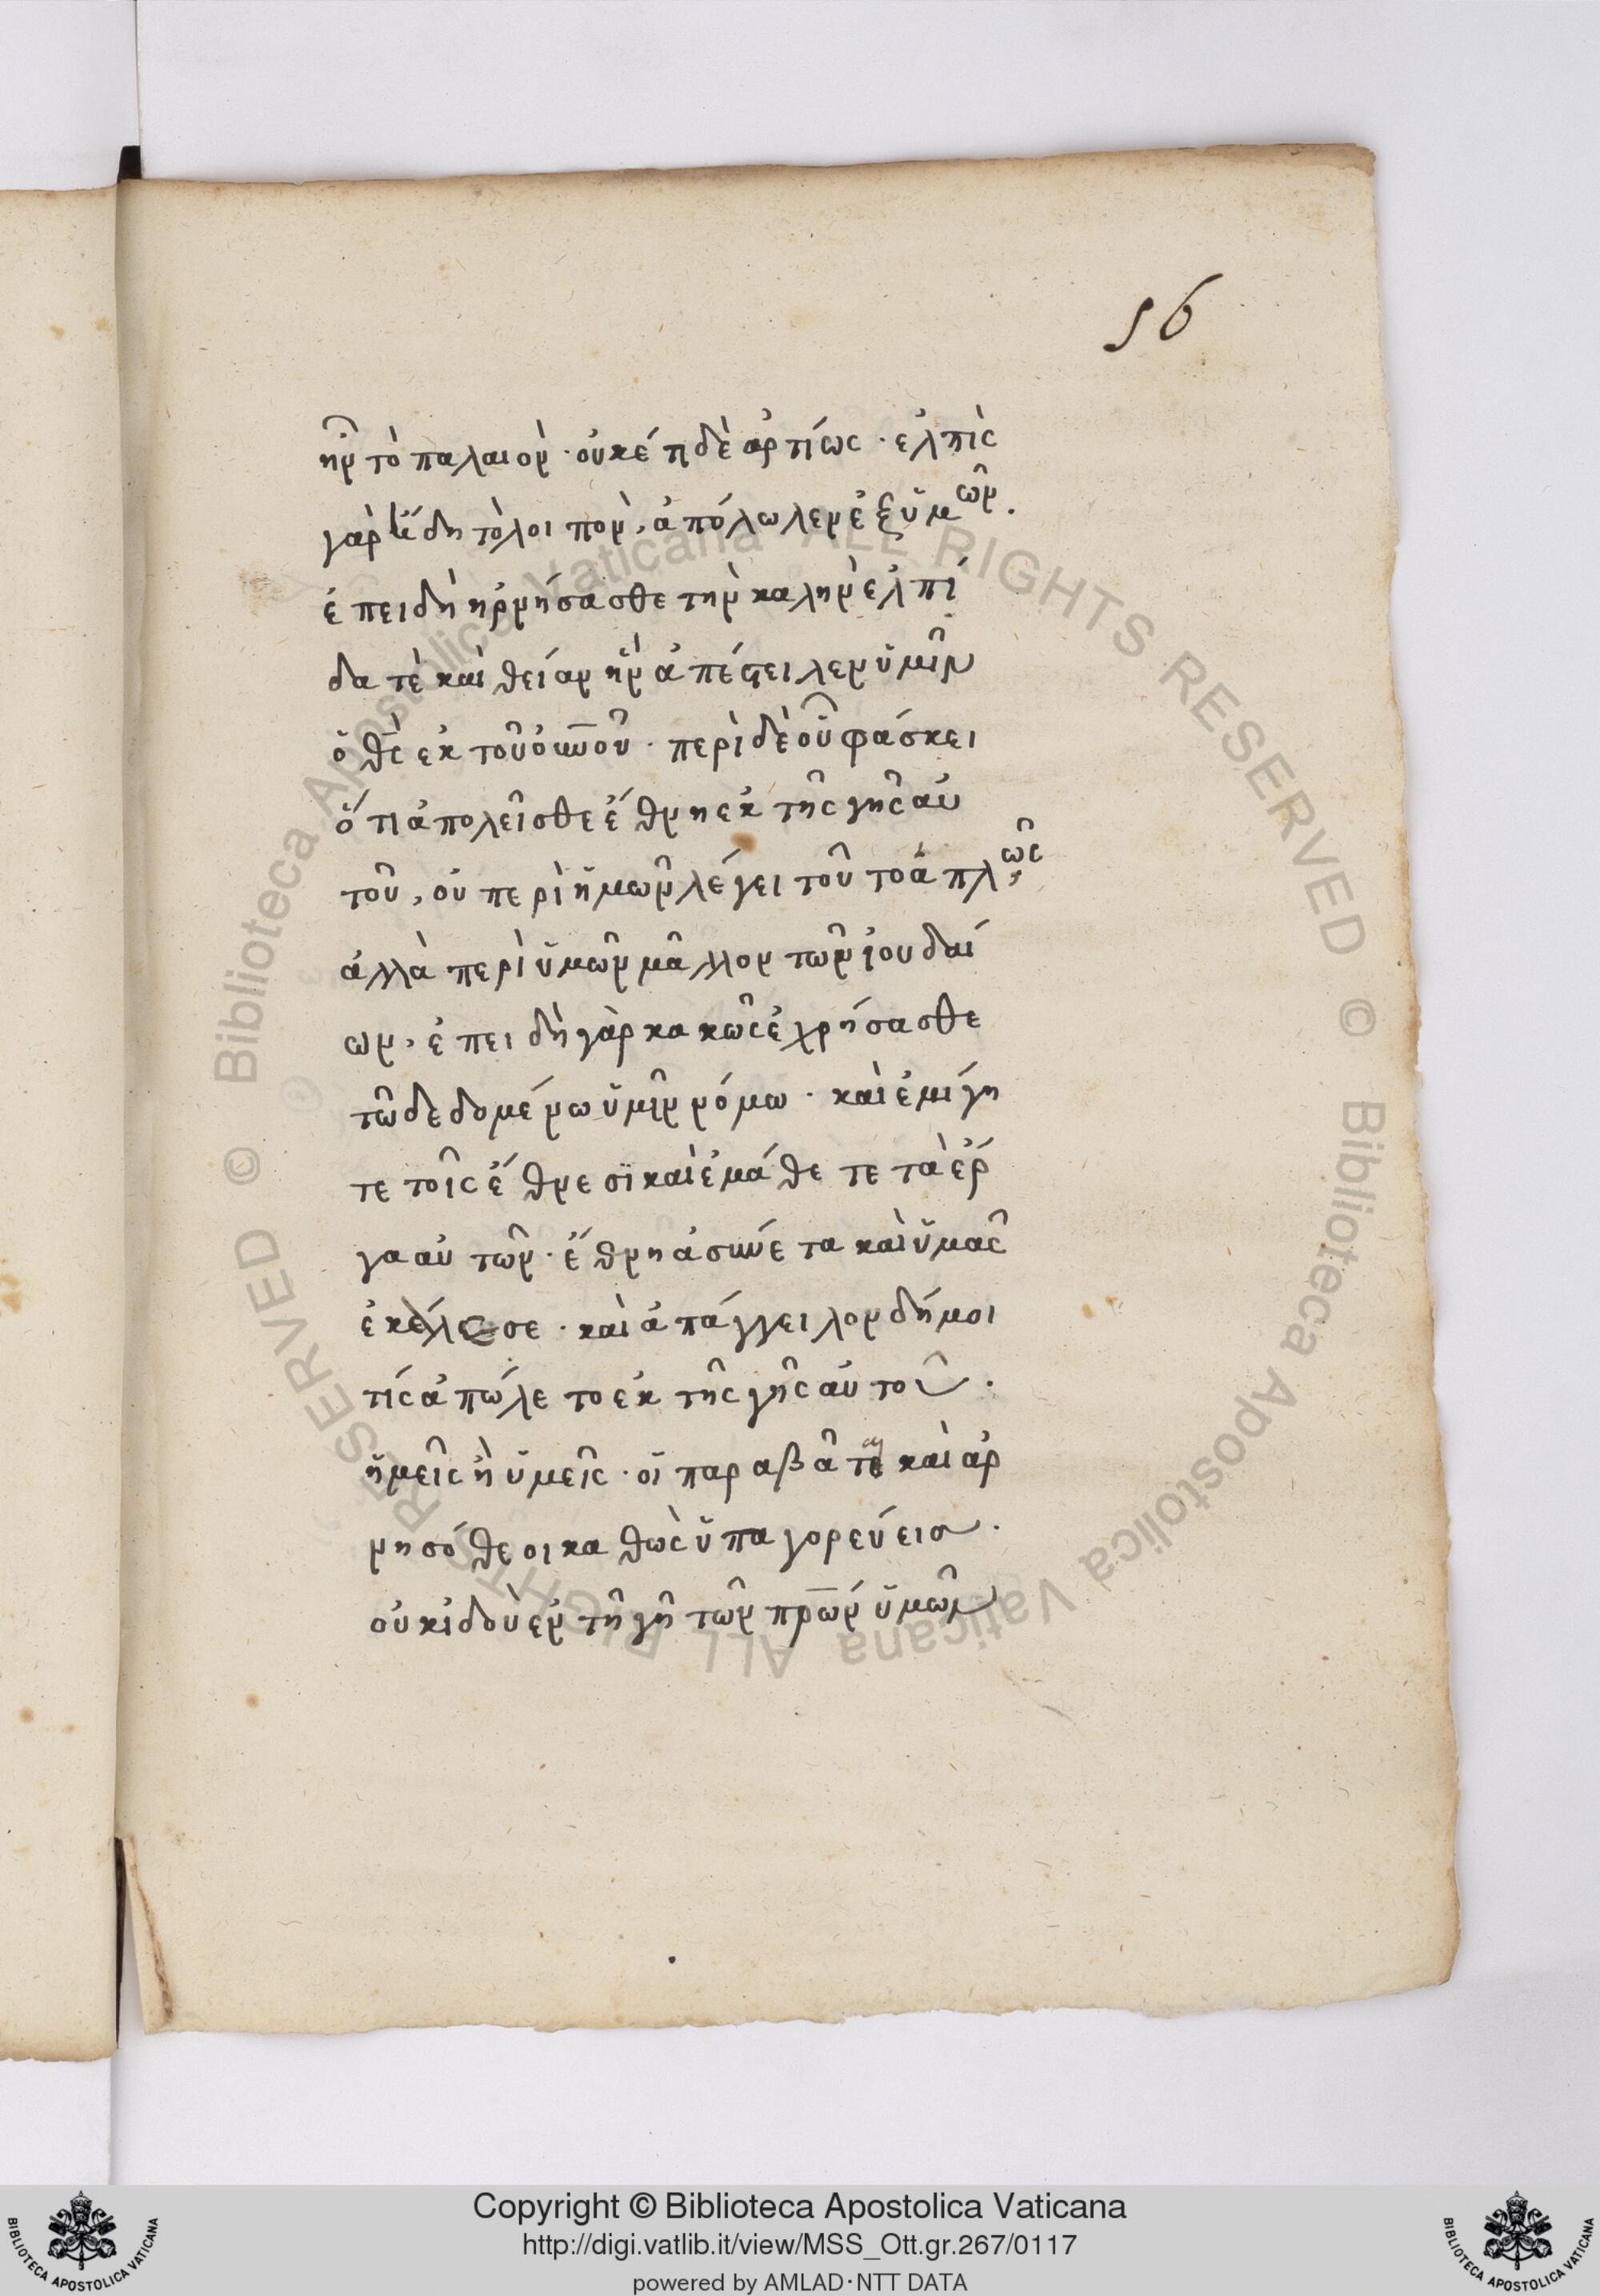 56
ἦν τὸ παλαιὸν · οὐκέτι δὲ ἀρτίως · ἐλπὶς
γὰρ ἤδη τὸ λοιπὸν, ἀπόλωλεν ἐξ ὑμῶν.
ἐπειδὴ ἠρνήσασθε τὴν καλὴν ἐλπί
δα τὲ καὶ θείαν ἣν ἀπέστειλεν ὑμῖν
ὁ θς ἐκ τοῦ οὐνοῦ · περὶ δὲ οὗ φάσκει
ὅτι ἀπολεῖσθε ἔθνη ἐκ τῆς γῆς αὐ
τοῦ, οὐ περὶ ἡμῶν λέγει τοῦτο ἁπλῶς,
ἀλλὰ περὶ ὑμῶν μᾶλλον τῶν ἰουδαί
ων, ἐπειδὴ γὰρ κακῶς ἐχρήσασθε
τῶ δεδομένω ὑμῖν νόμω · καὶ ἐμίγη
τε τοῖς ἔθνεσϊ καὶ ἐμάθετε τὰ ἔρ
γα αὐτῶν · ἔθνη ἀσύνετα καὶ ὑμᾶς
ἐκάλεσε · καὶ ἀπάγγειλον δή μοι
τίς ἀπώλετο ἐκ τῆς γῆς αὐτοῦ.
ἡμεῖς ἢ ὑμεῖς · οἱ παραβᾶται καὶ ἀρ
νησόθεοι καθὼς ὑπαγορεύεις.
οὐκ ἰδοὺ ἐν τῆ γῆ τῶν πρων ὑμῶν
Copyright © Biblioteca Apostolica Vaticana
http://digi.vatlib.it/view/MSS_Ott.gr.267/0117
powered by AMLAD·NTT DATA